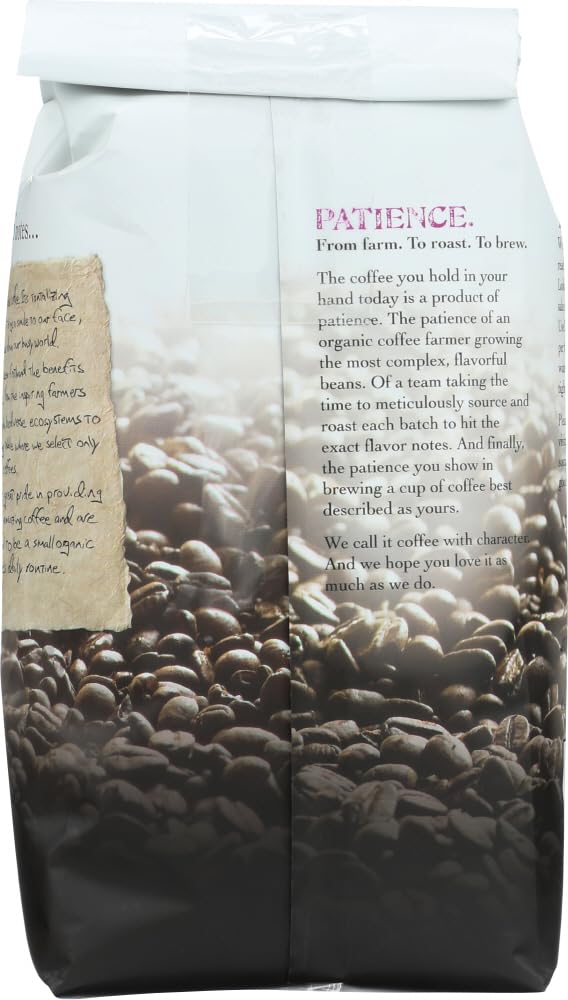 PATIENCE.
From farm. To roast. To brew.
The coffee you hold in your
hand today is a product of
patience. The patience of an
organic coffee farmer growing
the most complex, flavorful
beans. Of a team taking the
time to meticulously source and
roast each batch to hit the
exact flavor notes. And finally,
the patience you show in
brewing a cup of coffee best
described as yours.
We call it coffee with character.
And we hope you love it as
much as we do.
tantalizing
smile to our face,
our busy world.
the benefits
inspiring farmers
ecosystems to
where we select only
pride in providing
coffee and are
to be a small organic
daily routine.